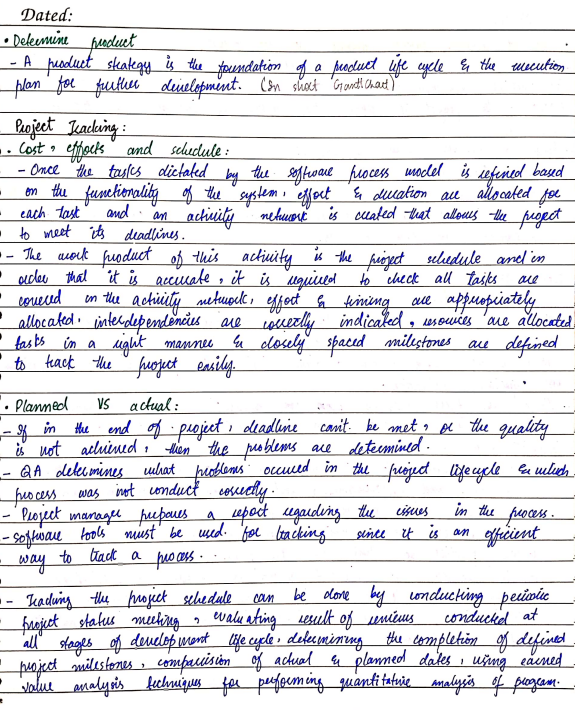 Dated:
• Determine product
- A product strategy is the foundation of a product life cycle & the execution
plan for further development. (In short Gantt Chart)
Project Tracking:
• Cost, efforts and schedule:
- Once the tasks dictated by the software process model is refined based
on the functionality of the system, effort & duration are allocated for
each task and an activity network is created that allows the project
to meet its deadlines.
- The work product of this activity is the project schedule and in
order that it is accurate, it is required to check all tasks are
covered in the activity network, effort & timing are appropriately
allocated, interdependencies are correctly indicated, resources are allocated
tasks in a right manner & closely spaced milestones are defined
to track the project easily.
• Planned VS actual:
- If in the end of project, deadline can't be met, or the quality
is not achieved, then the problems are determined.
- QA determines what problems occured in the project lifecycle & which
process was not conduct correctly.
- Project manager prepares a report regarding the issues in the process.
- Software tools must be used for tracking since it is an efficient
way to track a process.
- Tracking the project schedule can be done by conducting periodic
project status meeting, evaluating result of reviews conducted at
all stages of development lifecycle, determining the completion of defined
project milestones, comparision of actual & planned dates, using earned
value analysis techniques for performing quantitative analysis of program.